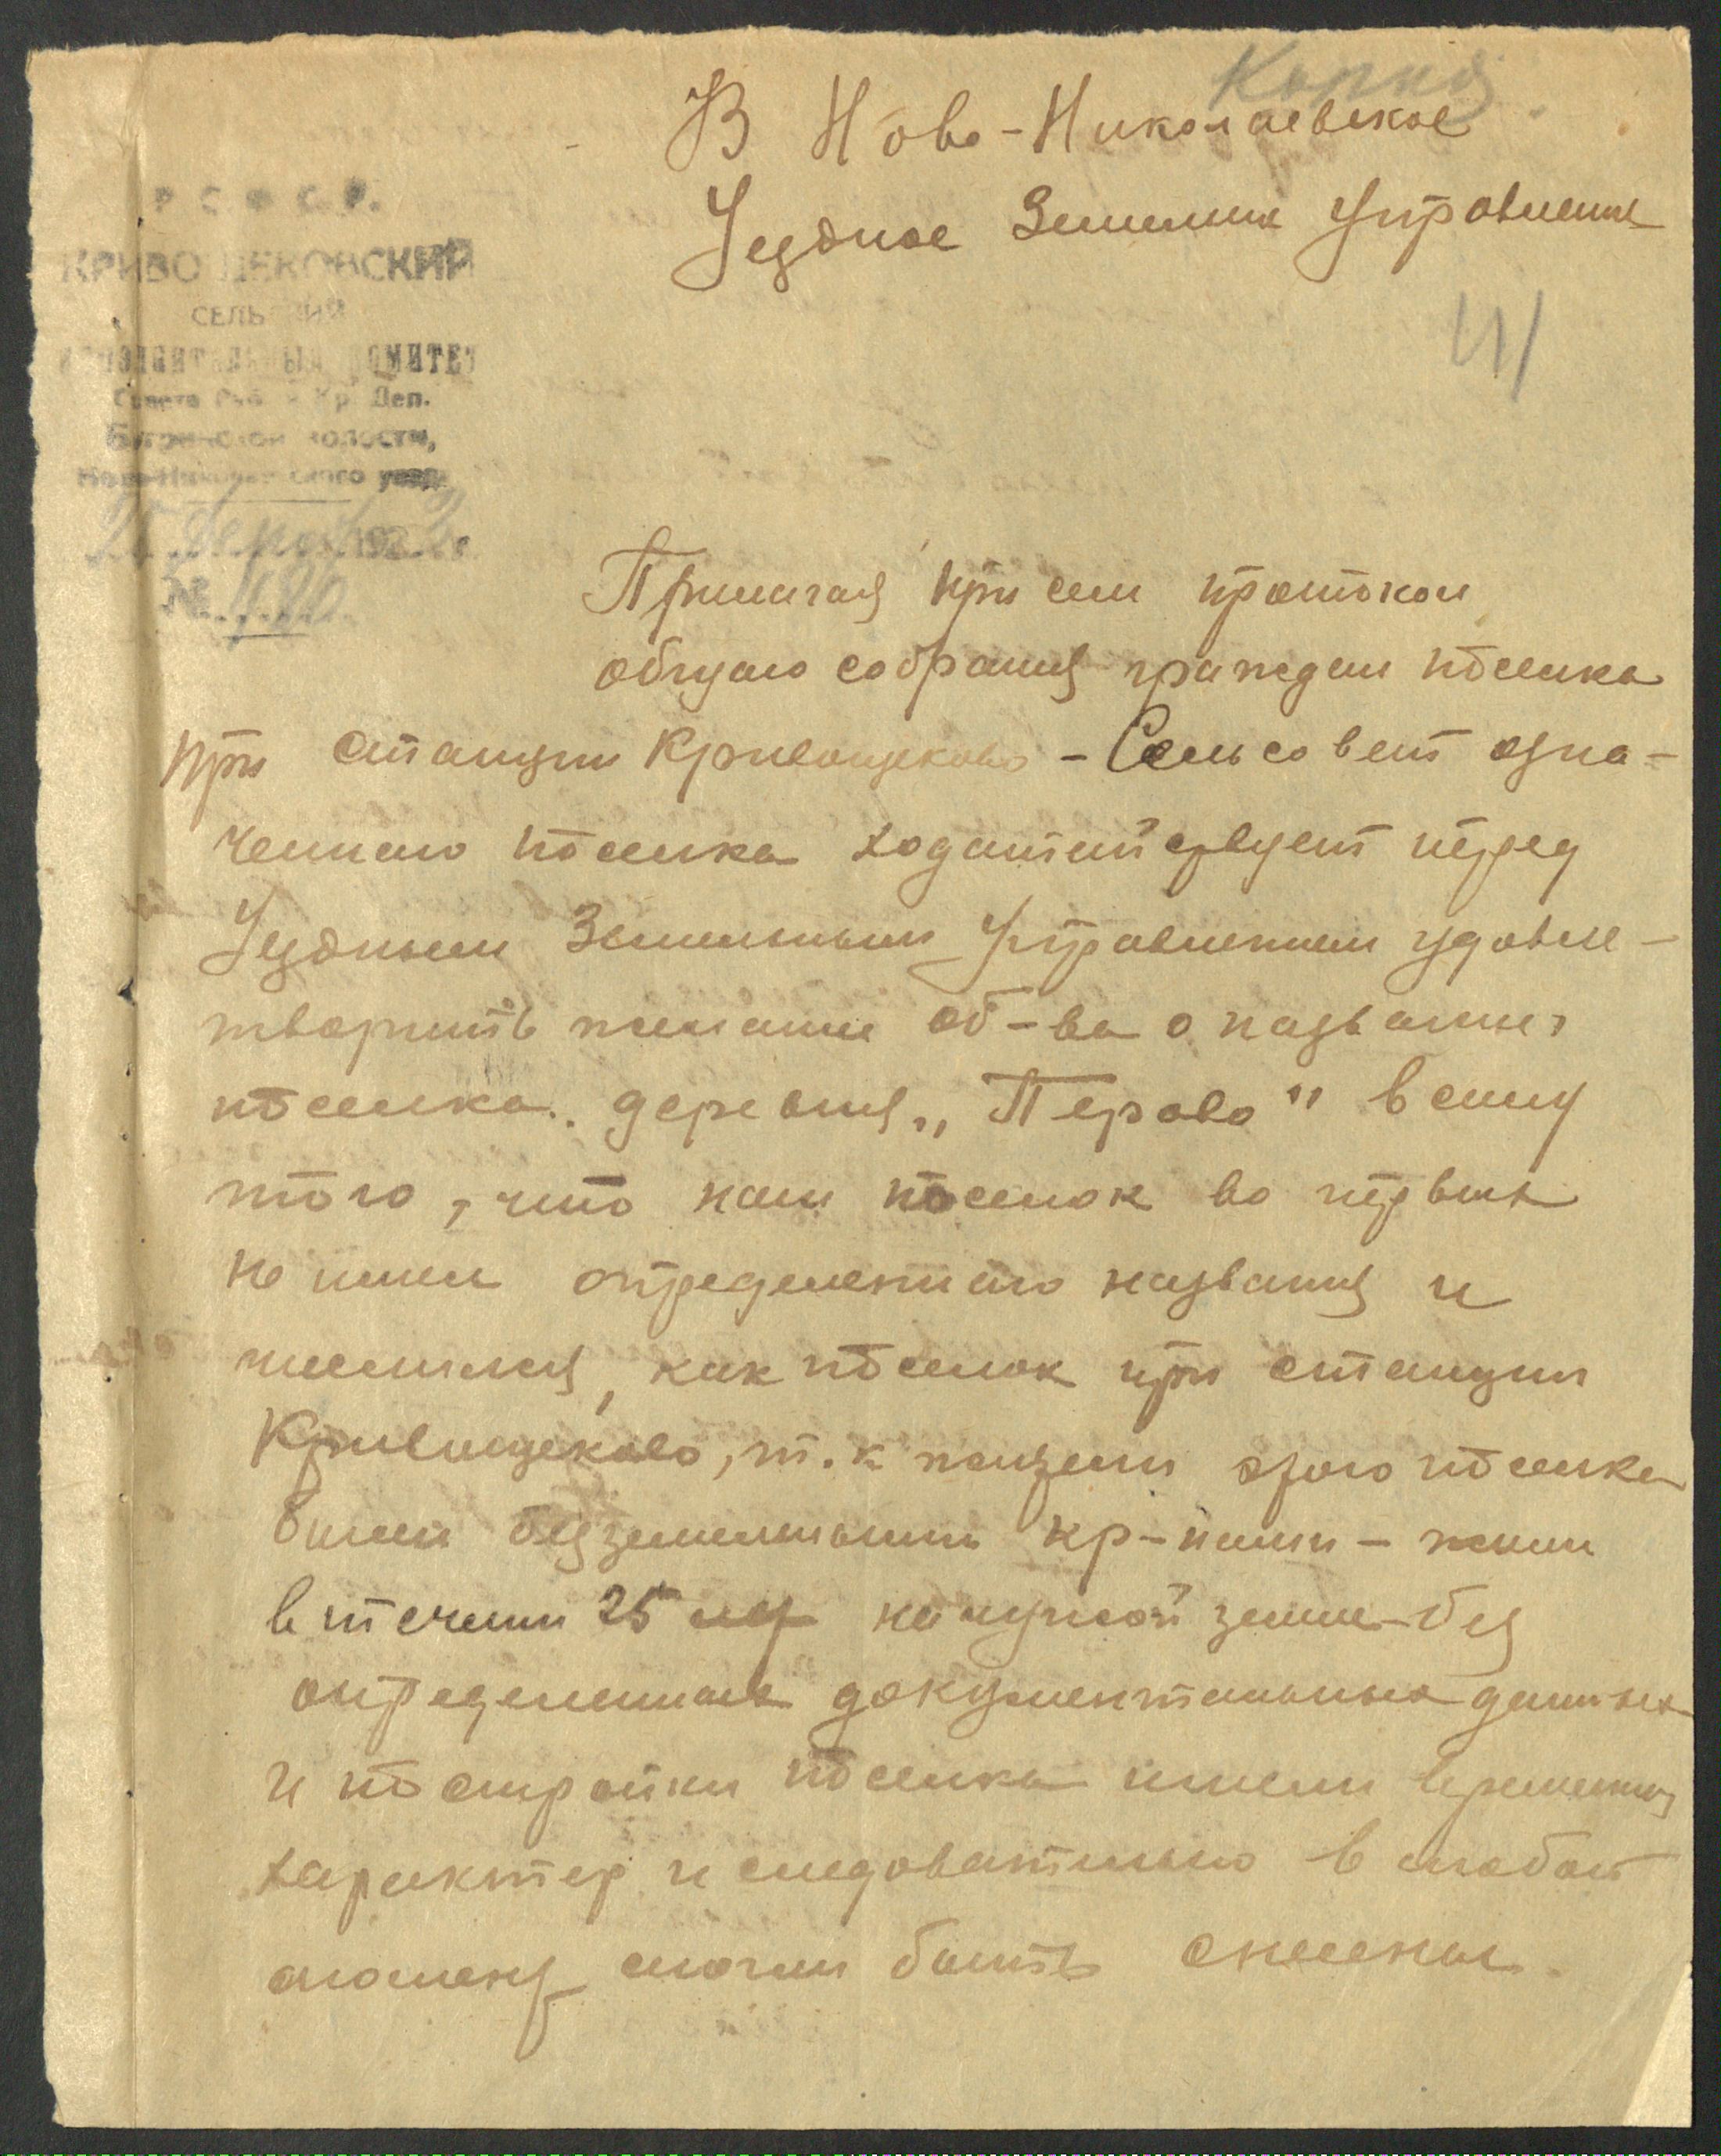 Копия.
В Ново-Николаевское
Уездное Земельное Управление
Р С Ф С Р.
КРИВОЩЕКОВСКИЙ
СЕЛЬСКИЙ
ИСПОЛНИТЕЛЬНЫЙ КОМИТЕТ
Совета Раб. и Кр. Деп.
Бугринской волости,
Ново-Николаевского уезда
192 г.
№
Прилагая при сем протокол
общаго собрания граждан поселка
при станции Кривощеково - Сельсовет озна-
ченнаго поселка ходатайствует перед
Уездным Земельным Управлением удовле-
творить желание об-ва о названии
поселка. деревня „Перово" в силу
того, что наш поселок во первых
не имел определеннаго названия и
числился, как поселок при станции
Кривощеково, т. к. жители этого поселка
были безземельными кр-нами - жили
в течении 25 лет на чужой земле - без
определенных документальных данных
и постройки поселка имели временный
характер и следовательно в любой
момент могли быть снесены.